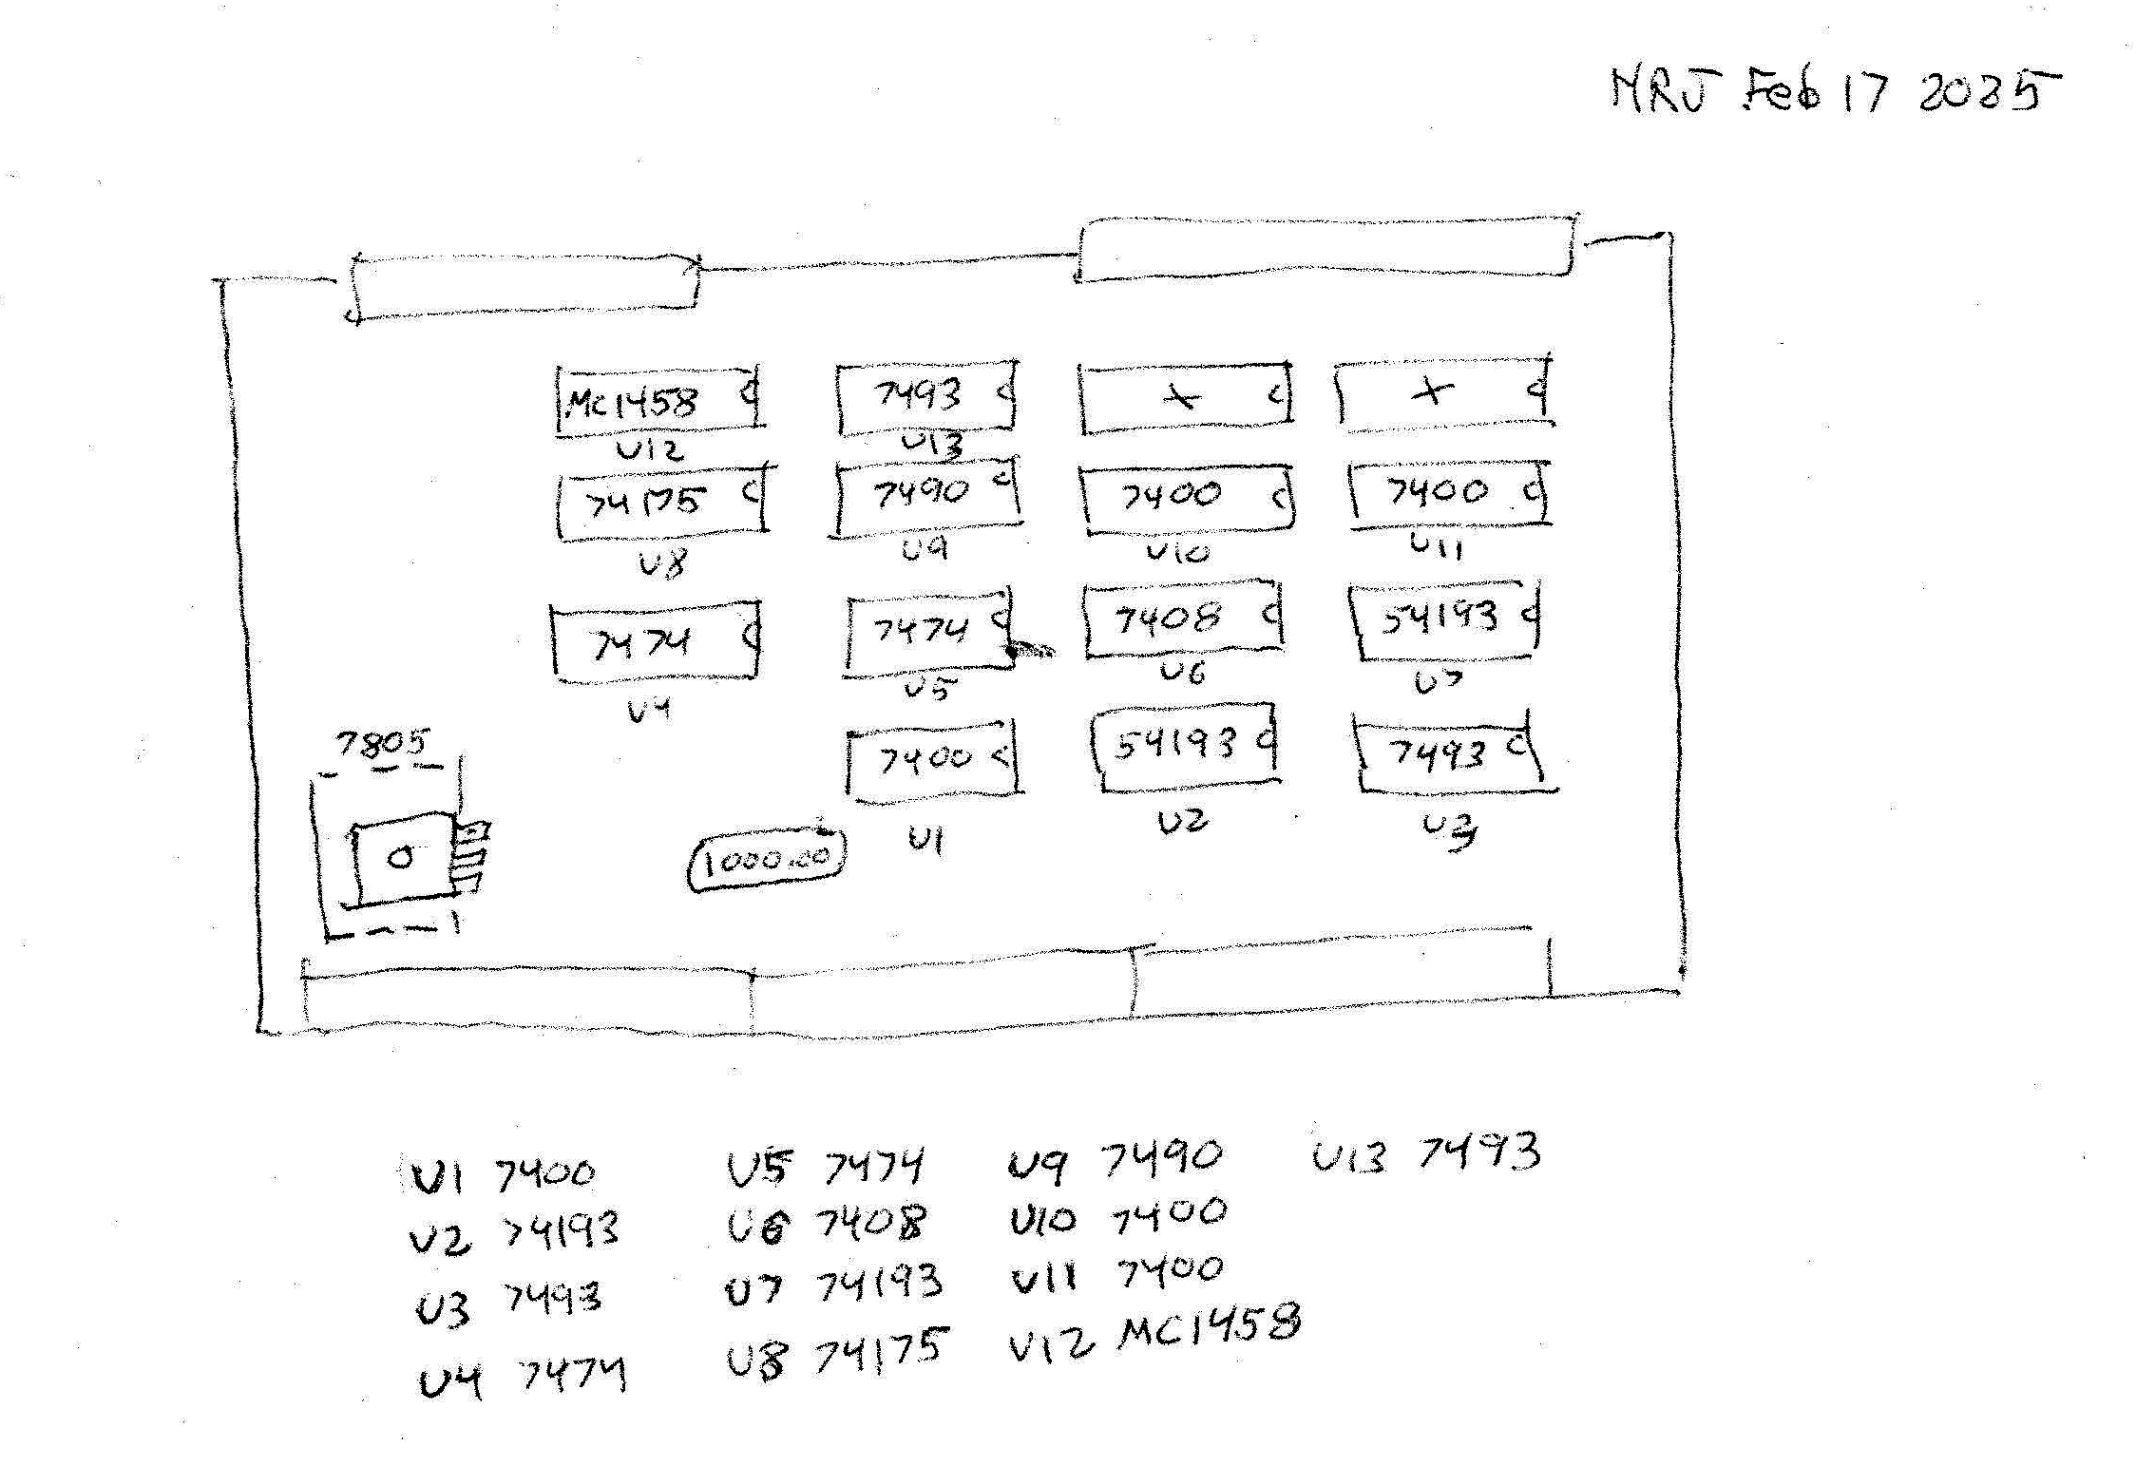 HRJ Feb 17 2025
MC1458 7493 X X
U12 U13
74175 7490 7400 7400
U8 U9 U10 U11
7474 7474 7408 54193
U4 U5 U6 U7
7805
7400 54193 7493
U1 U2 U3
1000.00
U1 7400 U5 7474 U9 7490 U13 7493
U2 74193 U6 7408 U10 7400
U3 7493 U7 74193 U11 7400
U4 7474 U8 74175 U12 MC1458